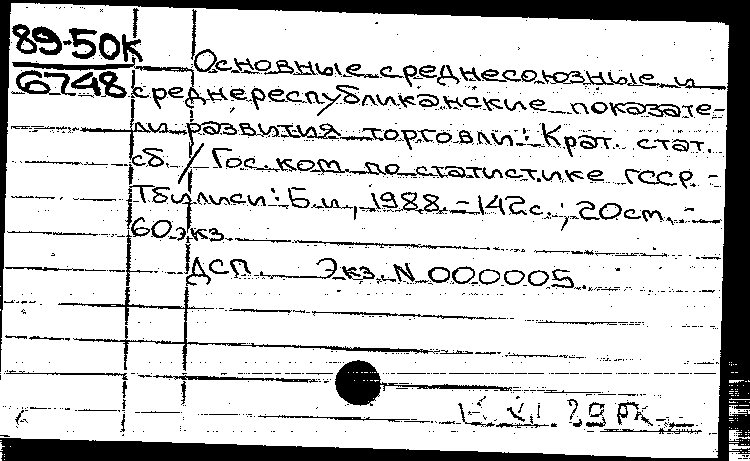 89-50К
6748
Основные среднесоюзные и
среднереспубликанские показате-
ли развития торговли: Крат. стат.
сб. / Гос. ком. по статистике ГССР. -
Тбилиси: Б.и., 1988. - 142с.; 20см. -
60экз
ДСП. Экз. N 000005.